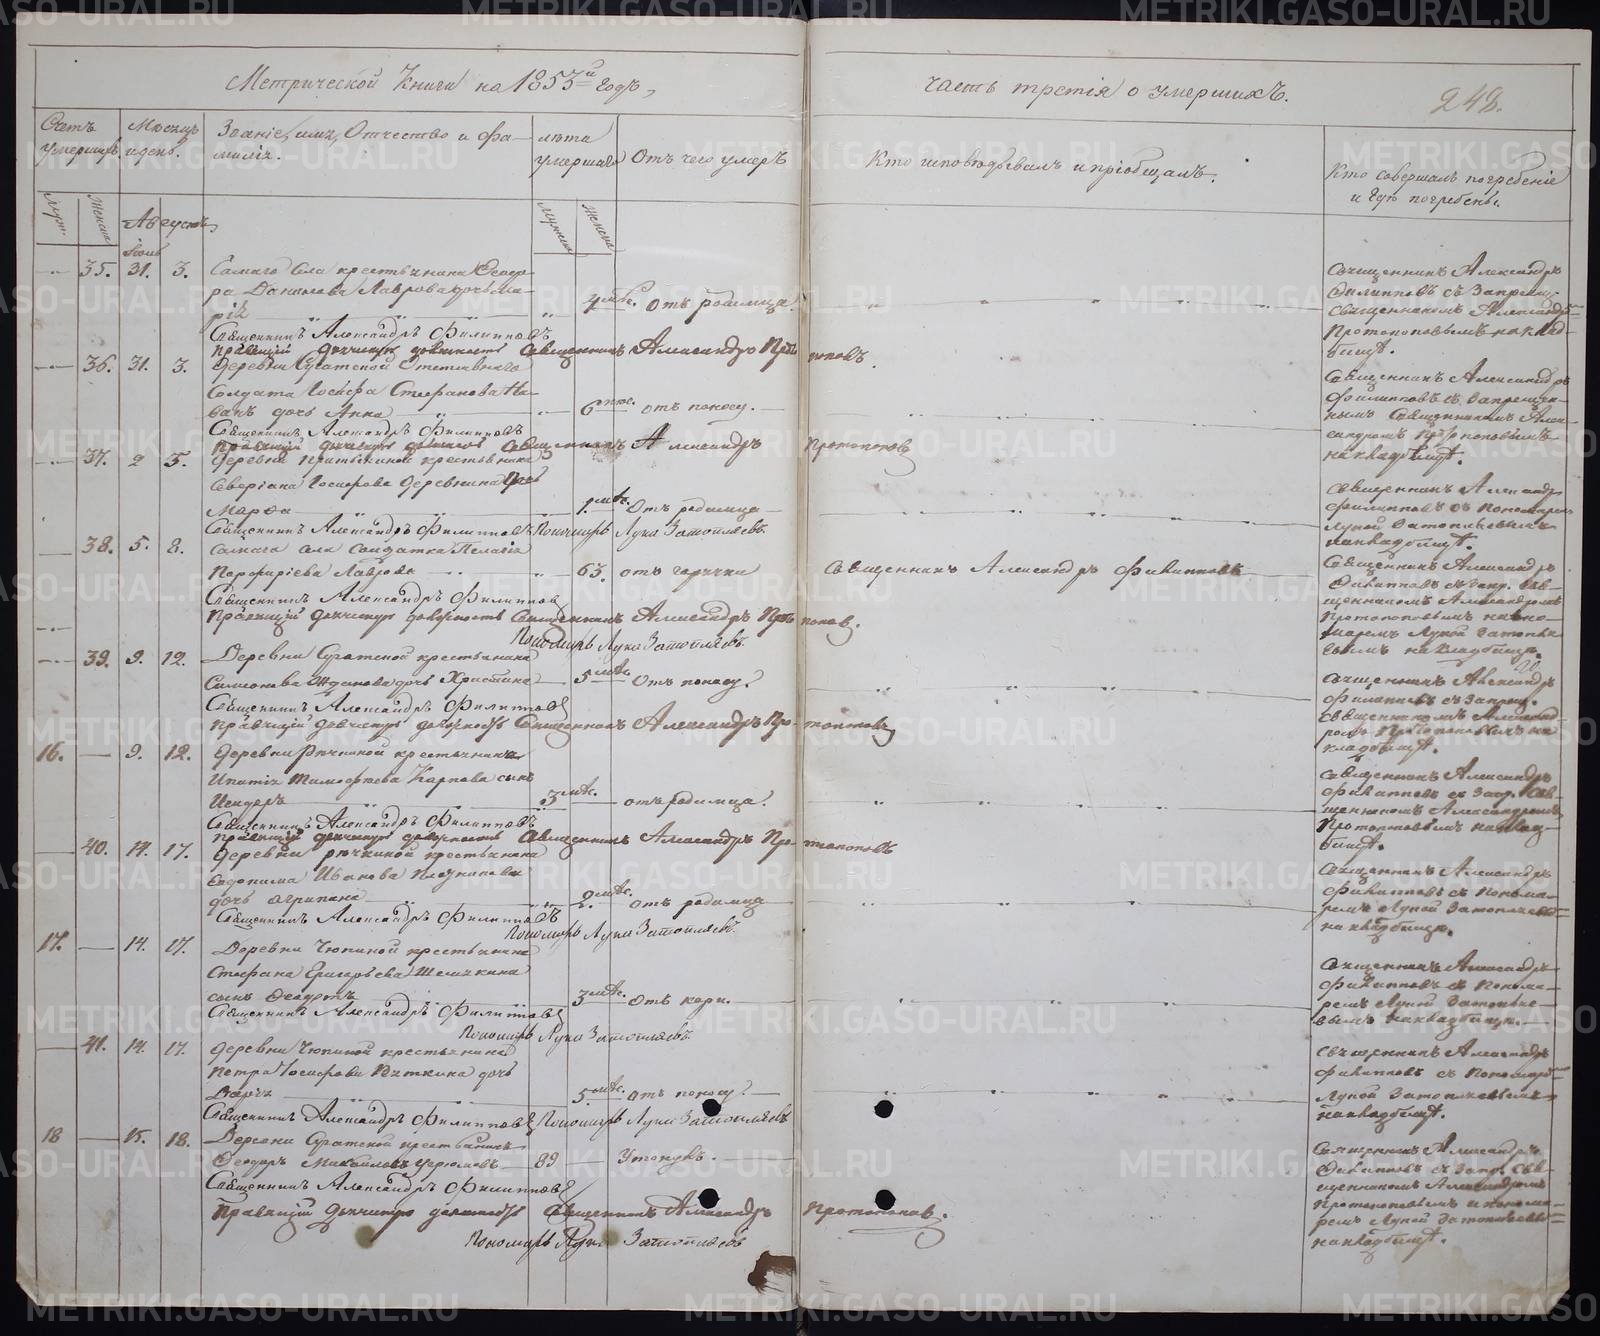 Метрической Книги на 1853й годъ,
часть третія о умершихъ.
248.
Счетъ умершихъ.
Месяцъ и день.
Званіе, имя, Отчество и фамилія.
лета умершаго
Отъ чего умеръ
Кто исповедывалъ и пріобщалъ.
Кто совершалъ погребеніе и где погребены.
Муж. Женск.
Августъ
Мужеска Женска
Іюль
35. 31. 3. Самаго Села крестьянина Феодора Данилова Лаврова дочь Марія
мес. отъ родимца.
Священникъ Александръ Филипповъ съ Запрещ. священникомъ Александромъ Протопоповымъ на кладбище.
Священникъ Александръ Филипповъ
Правящій дьячкову должность Священникъ Александръ Протопоповъ.
36. 31. 3. Деревни Сугатской Отставнаго Солдата Іосифа Стефанова дочь Анна
6 мес. отъ поносу.
Священникъ Александръ Филипповъ съ Запрещеннымъ Священникомъ Александромъ Протопоповымъ на кладбище.
Священникъ Александръ Филипповъ
Правящій дьячкову должность Священникъ Александръ Протопопов
37. 2 5. Деревни крестьянина Северіана Іосифова дочь Марфа
1 мес. Отъ родимца
Священникъ Александръ Филипповъ съ Пономаремъ Лукой Затопляевымъ на кладбище.
Священникъ Александръ Филипповъ Пономарь Лука Затопляевъ
38. 5. 8. Самаго села Солдатка Пелагія Порфиріева Лаврова
63. отъ горячки
Священникъ Александръ Филипповъ
Священникъ Александръ Филипповъ съ Запр. Священникомъ Александромъ Протопоповымъ и пономаремъ Лукой Затопляевымъ на кладбище.
Священникъ Александръ Филиппов
Правящій дьячкову должность Священникъ Александръ Протопопов.
Пономарь Лука Затопляевъ.
39. 9. 12. Деревни Сугатской крестьянина Жданова дочь Христина
5 мес. Отъ поносу.
Священникъ Александръ Филипповъ съ Запрещ. Священникомъ Александромъ Протопоповымъ на кладбище.
Священникъ Александръ Филиппов
Правящій дьячкову должность Священникъ Александръ Протопоповъ
16. 9. 12. Деревни Речкиной крестьянина Ипатія Тимофеева Карпова сынъ
3 мес. отъ родимца.
Священникъ Александръ Филипповъ съ Запр. Священникомъ Александромъ Протопоповымъ на кладбище.
Священникъ Александръ Филипповъ
Правящій дьячкову должность Священникъ Александръ Протопоповъ
40. 14. 17. Деревни речкиной крестьянина Евдокима Иванова дочь Агрипина
2. мес. отъ родимца
Священникъ Александръ Филипповъ съ Пономаремъ Лукой Затопляевымъ на кладбище.
Священникъ Александръ Филипповъ
Пономарь Лука Затопляевъ.
17. 14. 17. Деревни Чюпиной крестьянина Стефана Григорьева Шемякина сынъ Феодотъ
3 мес. Отъ кори.
Священникъ Александръ Филипповъ съ Пономаремъ Лукой Затопляевымъ на кладбище.
Священникъ Александръ Филиппов
Пономарь Лука Затопляевъ.
41. 14. 17. Деревни Чюпиной крестьянина Петра Іосифова Вяткина дочь Дарія
5. мес. отъ поносу.
Священникъ Александръ Филипповъ съ Пономаремъ Лукой Затопляевымъ на кладбище.
Священникъ Александръ Филиппов Пономарь Лука Затопляевъ
18 15. 18. Деревни Сугатской крестьянинъ Феодоръ Михайловъ
89 Утонулъ.
Священникъ Александръ Филипповъ съ Запр. Священникомъ Александромъ Протопоповымъ и пономаремъ Лукой Затопляевымъ на кладбище.
Священникъ Александръ Филиппов
Правящій дьячкову должность Священникъ Александръ Протопопов.
Пономарь Лука Затопляевъ
METRIKI.GASO-URAL.RU